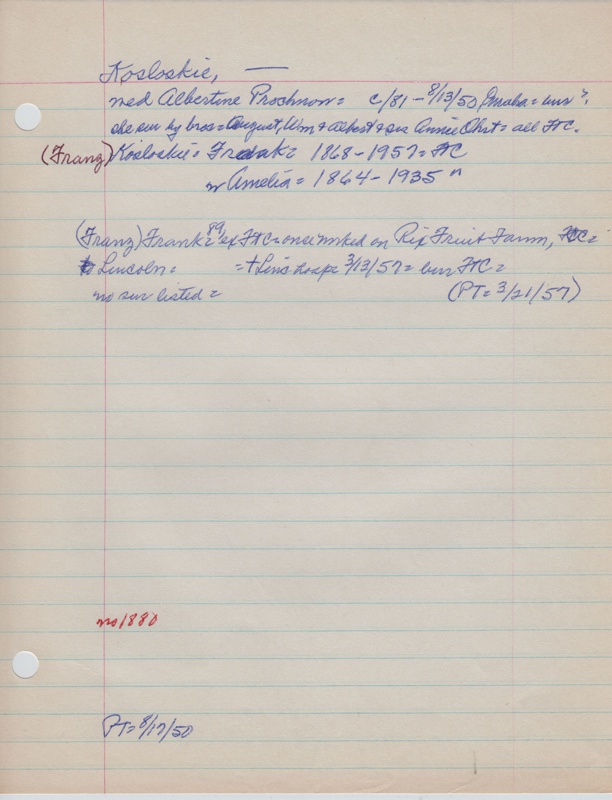 Kosloskie, —
med Albertine Prochnow = c/81 - 8/13/50 Omaha = bur ?,
she sur by bros = August, Wm & Albert & sis Annie Ohrt = all FtC.
(Franz) Kosloskie = Frank = 1868 - 1957 = FtC
w Amelia = 1864 - 1935 "
(Franz) Frank = 89 ex FtC = once worked on Rix Fruit Farm, FtC =
to Lincoln = = + Linc hosp 3/13/57 = bur FtC =
no sur listed = (PT = 3/21/57)
no 1880
PT = 8/17/50